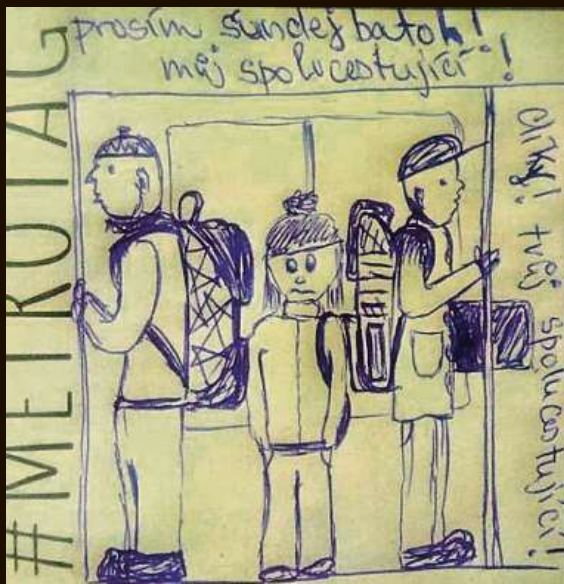 #METROTAG
prosím sundej batoh!
můj spolucestující!
díky! tvůj spolucestující!